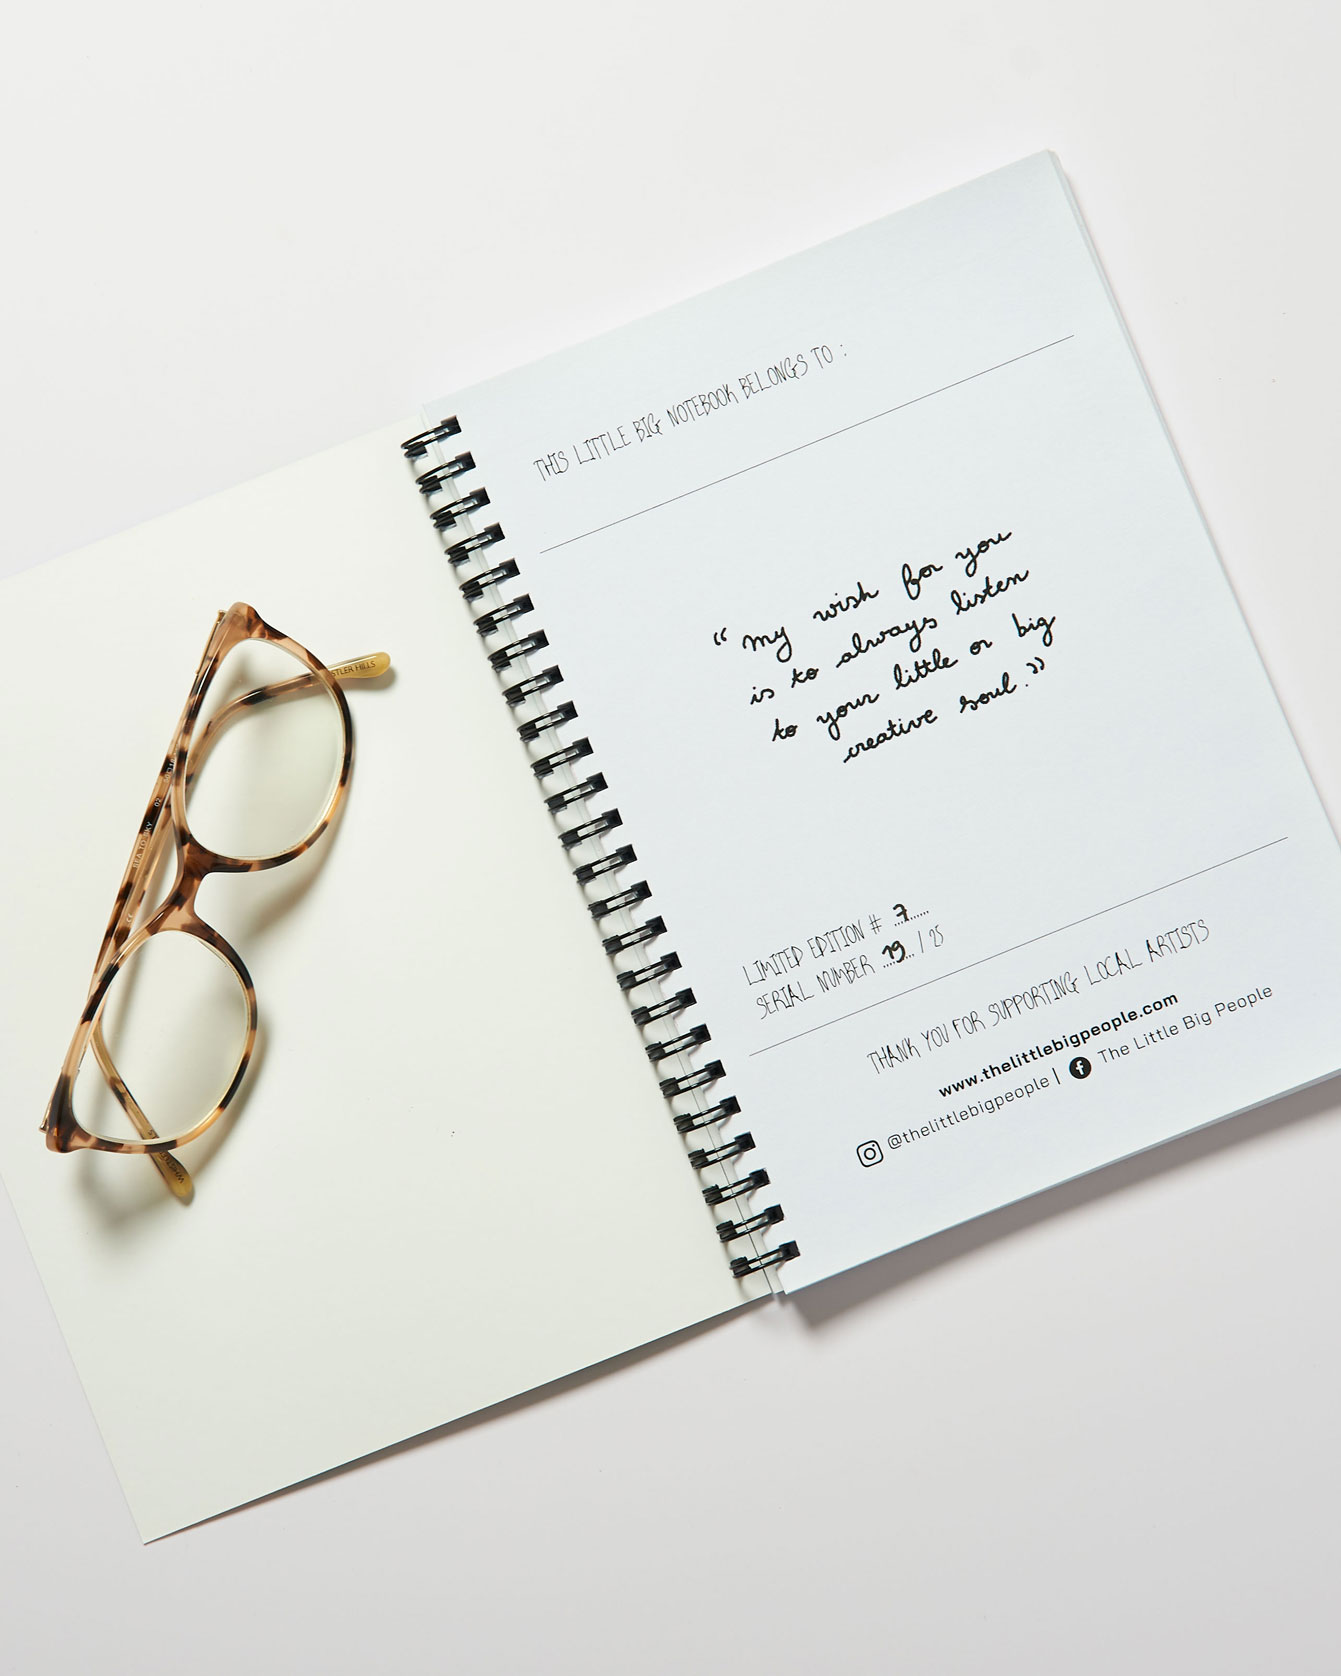 THIS LITTLE BIG NOTEBOOK BELONGS TO :
“ My wish for you
is to always listen
to your little or big
creative soul.”
LIMITED EDITION # 7
SERIAL NUMBER 19 / 25
THANK YOU FOR SUPPORTING LOCAL ARTISTS
www.thelittlebigpeople.com
@thelittlebigpeople | The Little Big People
HILLS
SEA TO SKY 02
CE